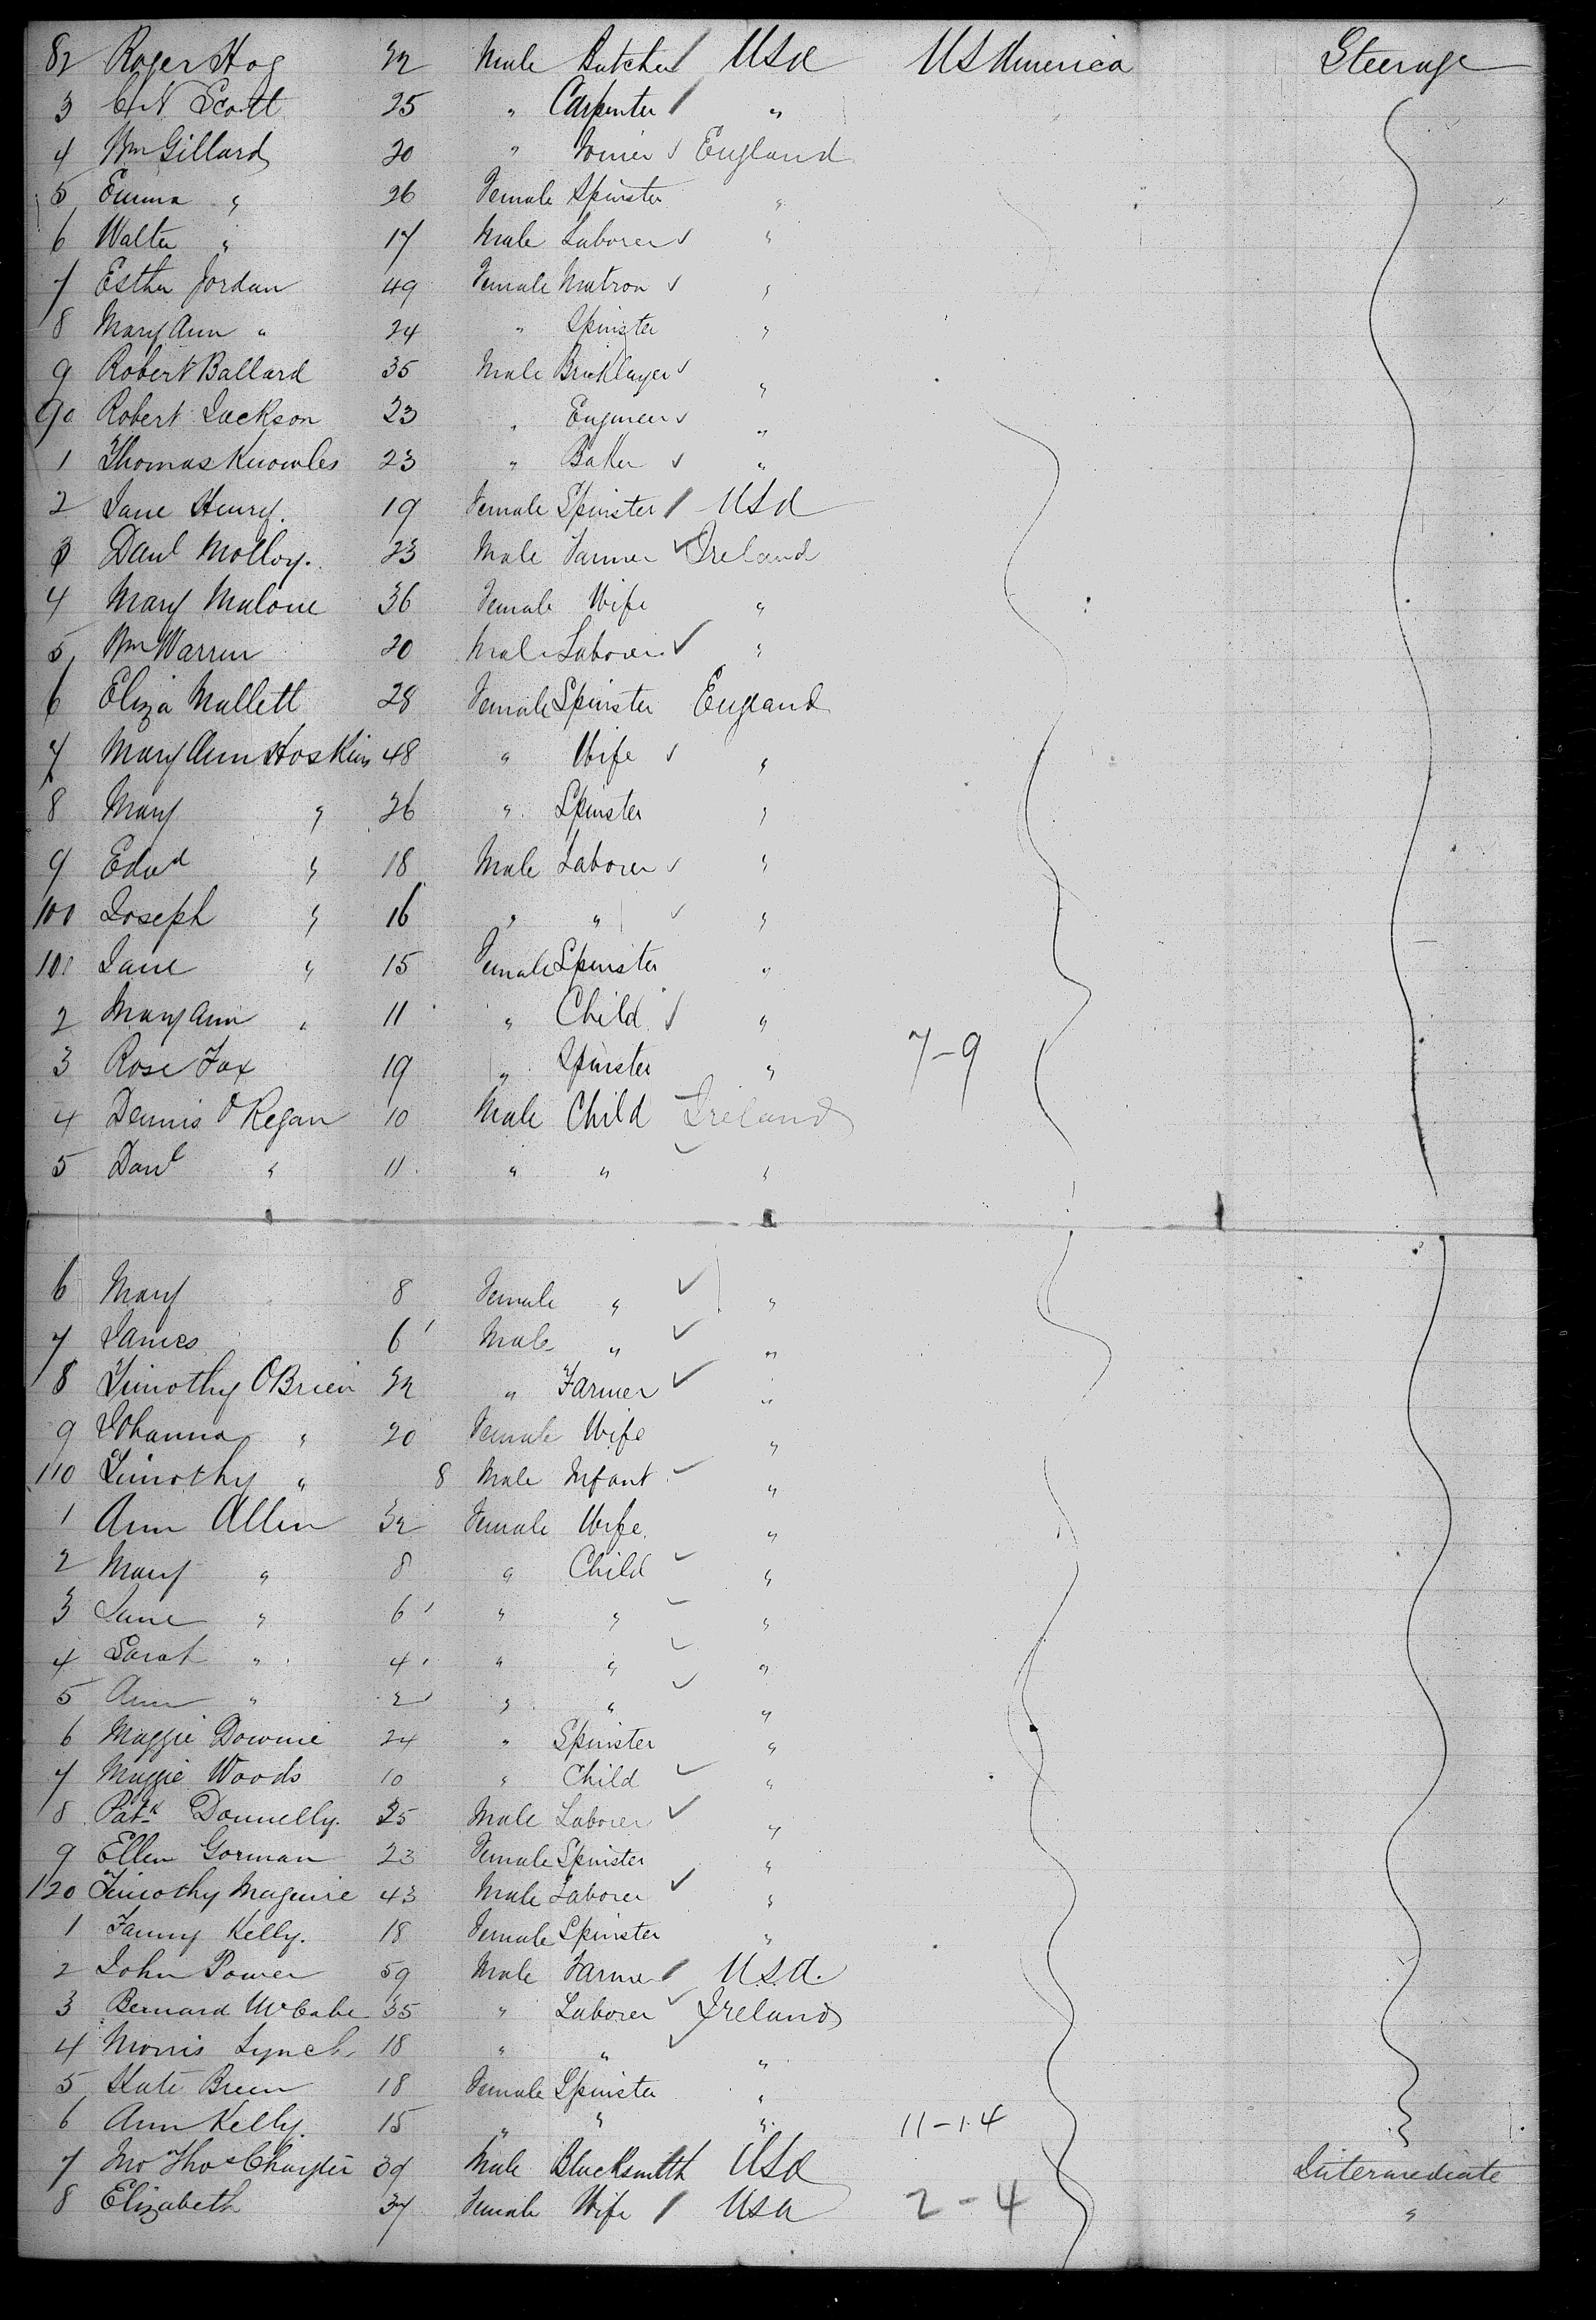 82 Roger Hog 32 Male Butcher / USA US America Steerage
3 C N Scott 25 " Carpenter / "
4 Wm Gillard 20 " Joiner ✓ England
5 Emma " 26 Female Spinster "
6 Walter " 17 Male Laborer ✓ "
7 Esther Jordan 49 Female Matron ✓ "
8 Mary Ann " 24 " Spinster "
9 Robert Ballard 35 Male Bricklayer ✓ "
90 Robert Jackson 23 " Engineer ✓ "
1 Thomas Knowles 23 " Baker ✓ "
2 Jane Henry. 19 Female Spinster / USA
3 Danl Molloy. 23 Male Farmer ✓ Ireland
4 Mary Malone 36 Female Wife "
5 Wm Warren 20 Male Laborer ✓ "
6 Eliza Mallett 28 Female Spinster England
7 Mary Ann Hoskins 48 " Wife ✓ "
8 Mary " 26 " Spinster "
9 Edwd " 18 Male Laborer ✓ "
100 Joseph " 16 " " ✓ "
101 Jane " 15 Female Spinster "
2 Mary Ann " 11 " Child ✓ "
3 Rose Fox 19 " Spinster " 7-9
4 Dennis O'Regan 10 Male Child Ireland
5 Danl " 11 " " ✓ "
6 Mary 8 Female " ✓ "
7 James 6 Male " ✓ "
8 Timothy OBrien 32 " Farmer ✓ "
9 Johanna " 20 Female Wife "
110 Timothy " 8 Male Infant ✓ "
1 Ann Allen 32 Female Wife "
2 Mary " 8 " Child ✓ "
3 Jane " 6 " " ✓ "
4 Sarah " 4 " " ✓ "
5 Ann " 2 " " ✓ "
6 Maggie Downie 24 " Spinster "
7 Maggie Woods 10 " Child ✓ "
8 Patk Donnelly. 25 Male Laborer ✓ "
9 Ellen Gorman 23 Female Spinster "
120 Timothy Maguire 43 Male Laborer ✓ "
1 Fanny Kelly. 18 Female Spinster "
2 John Power 59 Male Farmer / U.S.A.
3 Bernard McCabe 35 " Laborer ✓ Ireland
4 Morris Lynch 18 " " ✓ "
5 Kate Breen 18 Female Spinster "
6 Ann Kelly. 15 " " " 11-14
7 Jno Thos 39 Male Blacksmith USA Intermediate
8 Elizabeth 37 Female Wife / USA 2-4 "